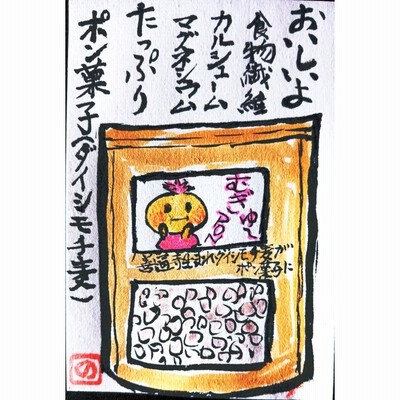 おいしいよ
食物繊維
カルシューム
マグネシウム
たっぷり
ポン菓子(ダイシモチ麦)
むぎゅ〜
善通寺生まれダイシモチ麦が
ポン菓子に
の